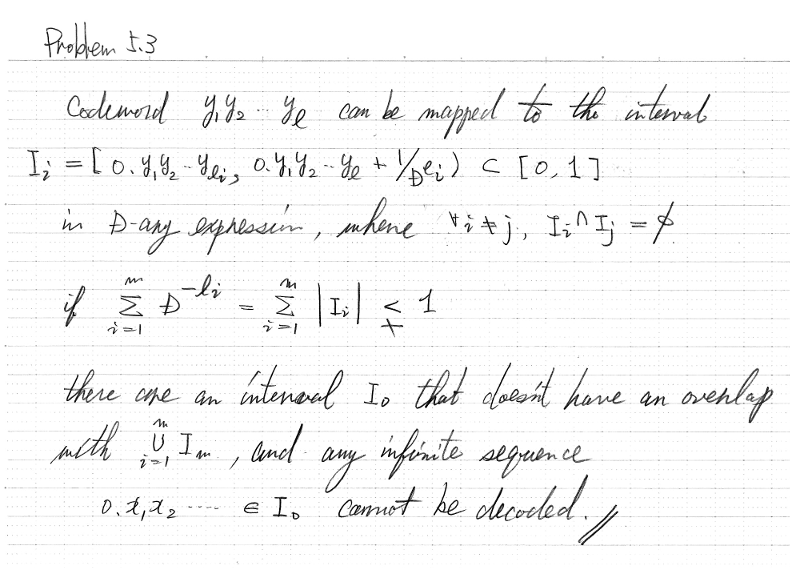 Problem 5.3
Codeword y₁y₂ ‥ yₗ can be mapped to the interval
Iᵢ = [ 0. y₁y₂ ‥ y_{lᵢ}, 0. y₁y₂ ‥ yₗ + 1/D^{lᵢ} ) ⊂ [0, 1]
in D-ary expression, where ∀i ≠ j, Iᵢ ∩ Iⱼ = ∅
if Σ_{i=1}^{m} D^{-lᵢ} = Σ_{i=1}^{m} |Iᵢ| ⪇ 1
there are an interval I₀ that doesn't have an overlap
with ∪_{i=1}^{m} Iₘ, and any infinite sequence
0. x₁x₂ ‥‥ ∈ I₀ cannot be decoded. //